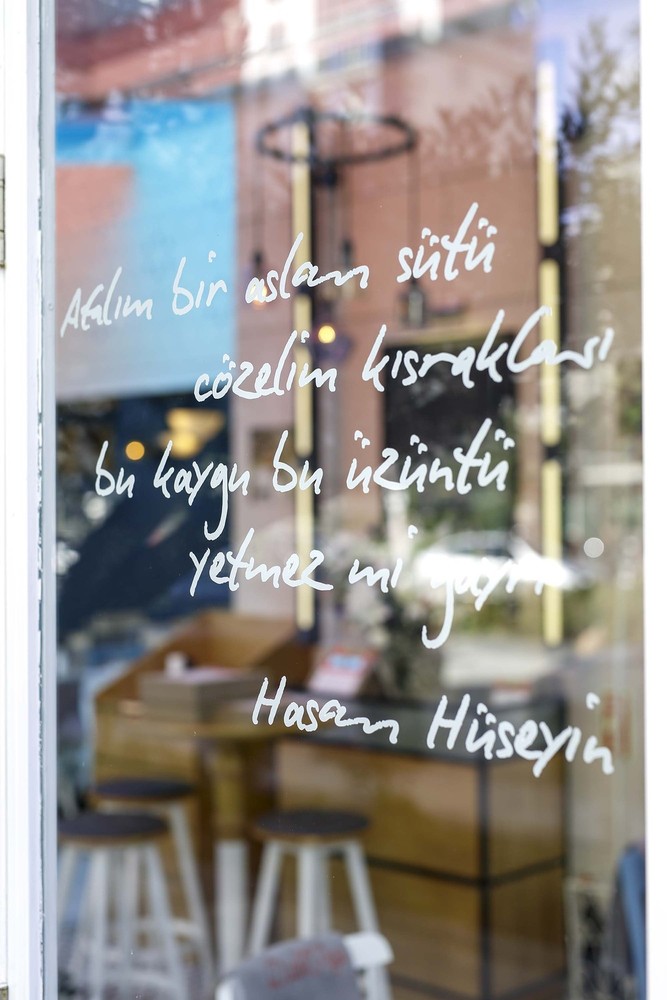 Atalım bir aslan sütü
cözelim kısrakları
bu kaygu bu üzüntü
yetmez mi gayrı
Hasan Hüseyin